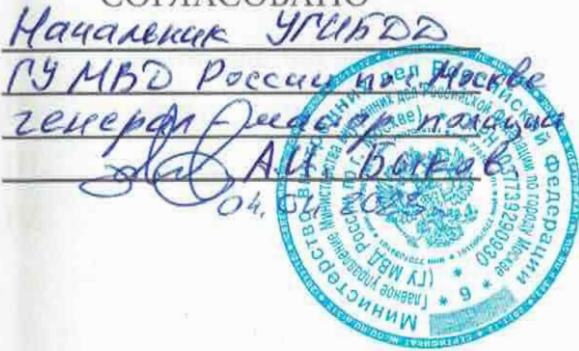 СОГЛАСОВАНО
Начальник УГИБДД
ГУ МВД России по г. Москве
генерал-майор полиции
А.И. Быков
04.04.2023
Министерство внутренних дел Российской Федерации
Главное управление Министерства внутренних дел Российской Федерации по городу Москве
(ГУ МВД России по г. Москве)
* 6 *